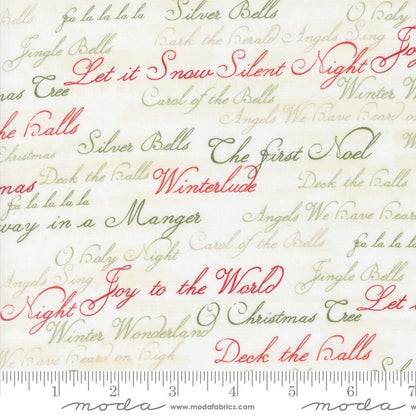 fa la la la la Silver Bells O Holy
Jingle Bells Hark the Herald Angels Sing
Let it Snow Silent Night Joy
mas Tree Carol of the Bells Winter W
the Halls Angels We Have Heard on
Christmas Silver Bells The First Noel
mas Deck the Halls Winterlude Deck the Halls
fa la la la la Angels We Have Hear
way in a Manger
O Holy Night Carol of the Bells fa la la la
Angels Sing Joy to the World Jingle Bells
Night O Christmas Tree Let i
Winter Wonderland
We Have Heard on High Deck the Halls
1 2 3 4 5 6 7
moda www.modafabrics.com moda